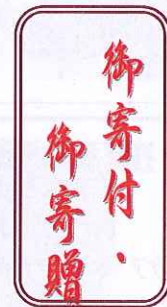 御寄付・
御寄贈